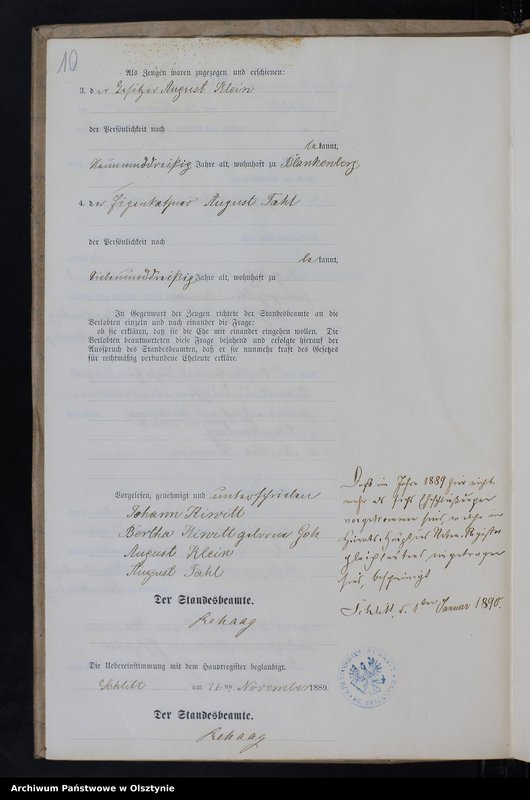 10
Als Zeugen waren zugezogen und erschienen:
3. der Besitzer August Klein
der Persönlichkeit nach
be kannt,
Neununddreißig Jahre alt, wohnhaft zu Blankenberg
4. der Eigenkäthner August Fahl
der Persönlichkeit nach
be kannt,
Siebenunddreißig Jahre alt, wohnhaft zu
In Gegenwart der Zeugen richtete der Standesbeamte an die
Verlobten einzeln und nach einander die Frage:
ob sie erklären, daß sie die Ehe mit einander eingehen wollen. Die
Verlobten beantworteten diese Frage bejahend und erfolgte hierauf der
Ausspruch des Standesbeamten, daß er sie nunmehr kraft des Gesetzes
für rechtmäßig verbundene Eheleute erkläre.
Vorgelesen, genehmigt und unterschrieben
Johann Kiwitt
Bertha Kiwitt geborene
August Klein
August Fahl
Der Standesbeamte.
Rehaag
Die Uebereinstimmung mit dem Hauptregister beglaubigt.
Schlitt am 26ten November 1889.
Der Standesbeamte.
Rehaag
Daß im Jahre 1889 hier nicht
mehr als Eheschließungen
vorgekommen sind,
Heirats-Haupt und Neben-Register
gleichlautend eingetragen
sind, bescheinigt
Schlitt, d. 1ten Januar 1890.
Archiwum Państwowe w Olsztynie